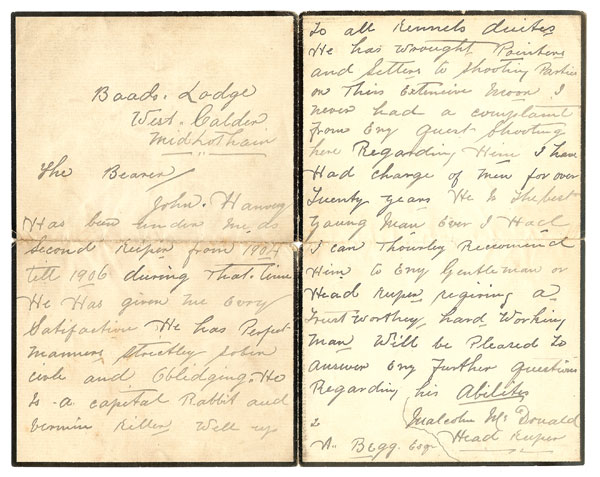 Baads. Lodge
West. Calder
Midlothain
The Bearer
John. Hannay
Has been under me as
Second Keeper from 1904
till 1906 during That. Time
He Has given me Every
Satifaction He has Perfect
manners strickley sober
civle and Oblidging. He
Is a capital Rabbit and
vermin Killer, Well up
To all Kennels duites
He has wrought Pointers
and Setters to Shooting Parties
on This Extensive Moor. I
never had a complaint
from Eny Guest Shooting
here Regarding Him I have
Had charge of men for over
Twenty years He Is the best
young Man Ever I Had
I can Thourley Reccomend
Him to Eny Gentleman or
Head Keeper regiring a
Trustworthey, hard Working
man Will be Pleased to
answer Eny Further Questions
Regarding his Abilites
Malcolm Mc Donald
Head Keeper
Begg. Esqr